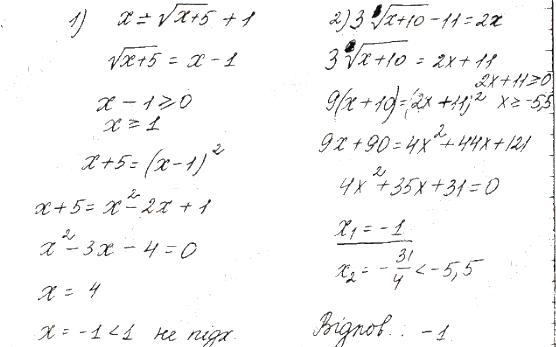 1) x = √(x+5) + 1
√(x+5) = x - 1
x - 1 ≥ 0
x ≥ 1
x+5 = (x-1)²
x+5 = x² - 2x + 1
x² - 3x - 4 = 0
x = 4
x = -1 < 1 не підх.
2) 3√(x+10) - 11 = 2x
3√(x+10) = 2x + 11
2x+11 ≥ 0
9(x+10) = (2x+11)² x ≥ -5,5
9x + 90 = 4x² + 44x + 121
4x² + 35x + 31 = 0
x₁ = -1
x₂ = -31/4 < -5,5
Відпов.: -1